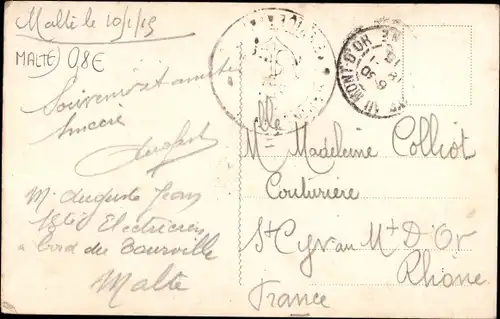 Malte le 10/1/19
MALTE 0,8€
Souvenir et amitié
Sincère
M. Auguste Jean
Electricien
a bord du Tourville
Malte
ST CYR AU MONT-D'OR
Mlle Madeleine Colliot
Couturière
St Cyr au Mt D'Or
Rhône
France